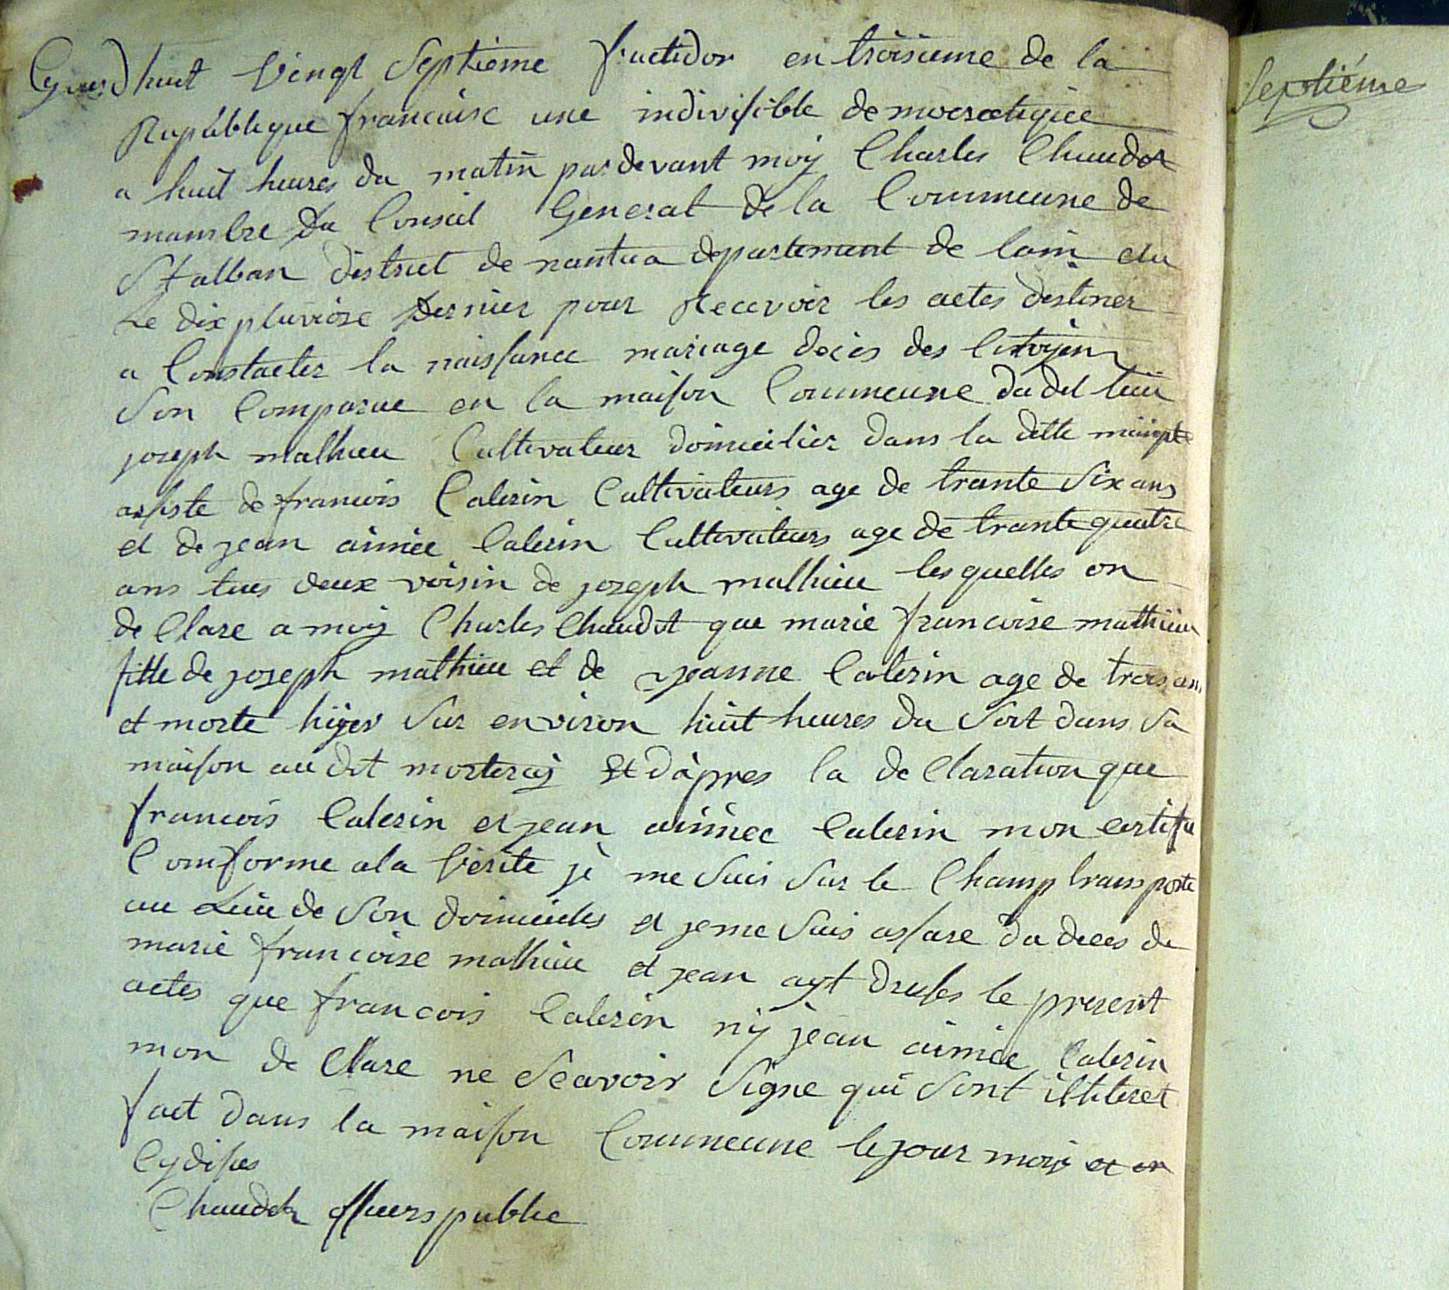 Cejourdhuit vingt Septieme fructidor en troisieme de la
Republique francaise une indivisible democratique
a huit heures du matin pardevant moy Charles Chaudet
mambre Du Conseil General de la Commeune de
St alban district de nantua departement de lain elu
Le dix pluviose Dernier pour Recevoir les actes destiner
a Constacter la naissance mariage deces des Citoyien
Son Comparue en la maison Commeune du dit lieu
joseph mathieu Cultivateur domicilier dans la ditte
assiste de francois Caterin Cultivateurs age de trante Six ans
et de jean aimée Caterin Cultivateurs age de trante quatre
ans tues deux voisin de joseph mathieu les quelles on
de Clare a moy Charles Chaudet que marie francoise mathieu
fille de joseph mathieu et de jeanne Caterin age de trois ans
et morte hijer Sur environ huit heures du Soit dans Sa
maison au dit morteray Et dàpres la de Claration que
francois Caterin et jean aimee Caterin mon certifie
Comforme a la Verite jè me Suis Sur le Champ transporte
au Lieu de Son domiciles et je me Suis assure du deces de
marie francoise mathieu et jean ayt dresses le present
actes que francois Caterin ny jean aimée Caterin
mon de Clare ne Scavoir Signe qui Sont illiteret
fait dans la maison Commeune le jour mois et an
Cydises
Chaudet officiers public
Septiéme